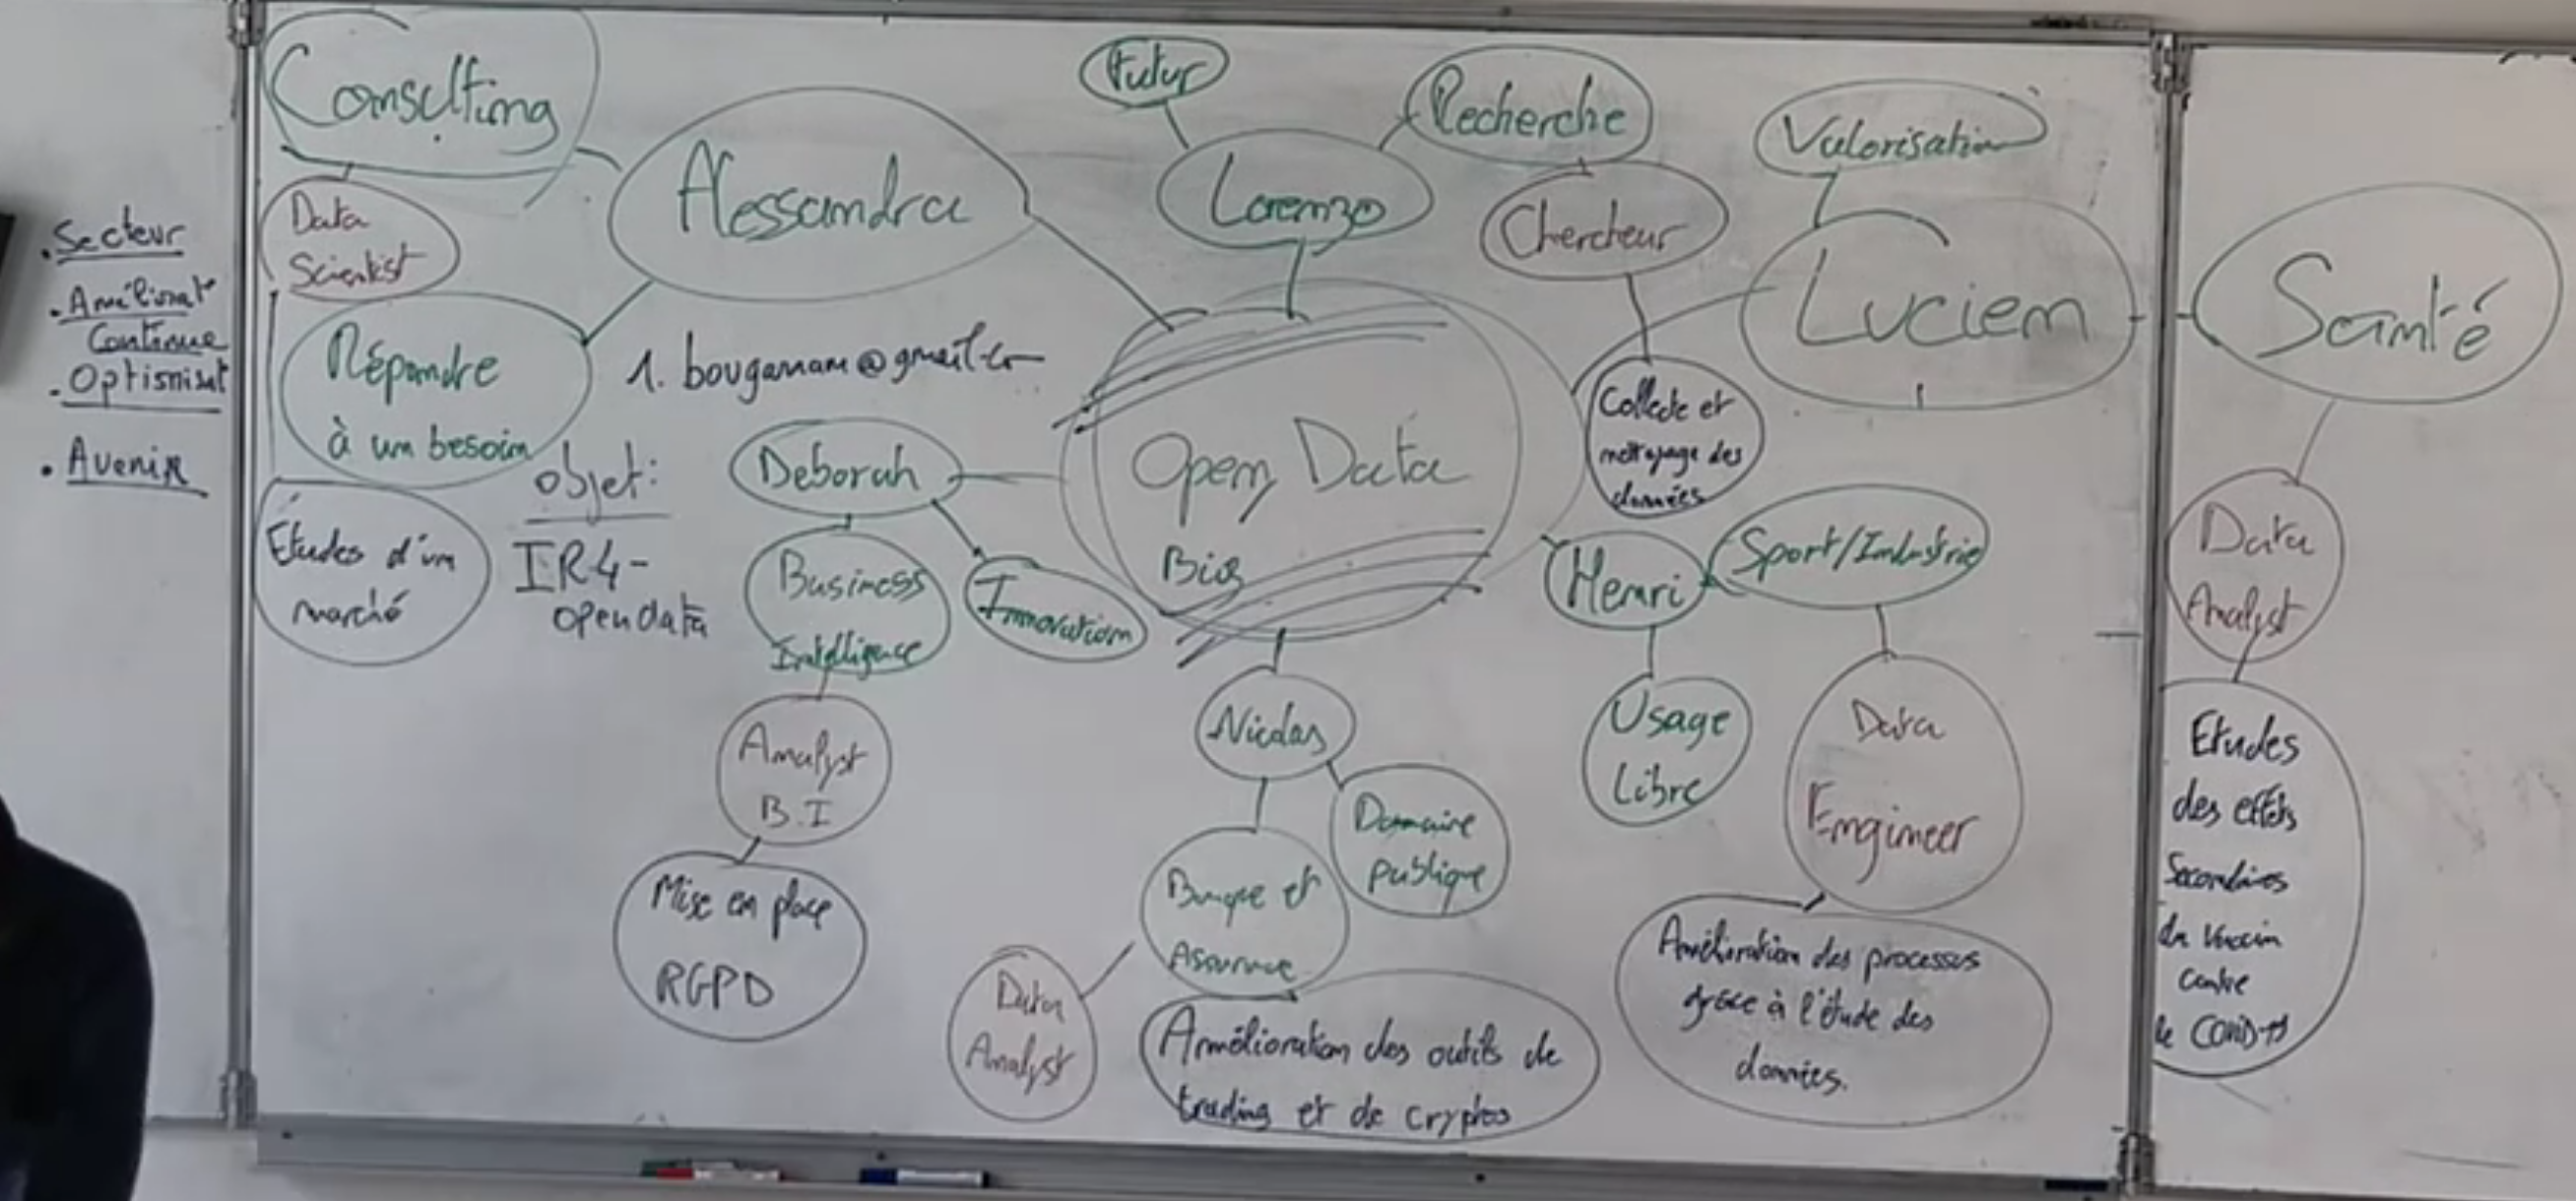 . Secteur
. Améliorat°
Continue
. Optimisat°
. Avenir
Consulting
Data
Scientist
Répondre
à un besoin
Études d'un
marché
Alessandra
1. bougamam@gmail.com
objet:
IR4-
opendata
Deborah
Business
Intelligence
Innovation
Analyst
B.I
Mise en place
RGPD
Futur
Lorenzo
Recherche
Chercheur
Collecte et
nettoyage des
données
Open Data
Nicolas
Domaine
publique
Banque et
Assurance
Data
Analyst
Amélioration des outils de
trading et de cryptos
Valorisation
Lucien
Henri
Sport/Industrie
Usage
Libre
Data
Engineer
Amélioration des processus
grâce à l'étude des
données.
Santé
Data
Analyst
Etudes
des effets
Secondaires
du Vaccin
contre
le COVID-19